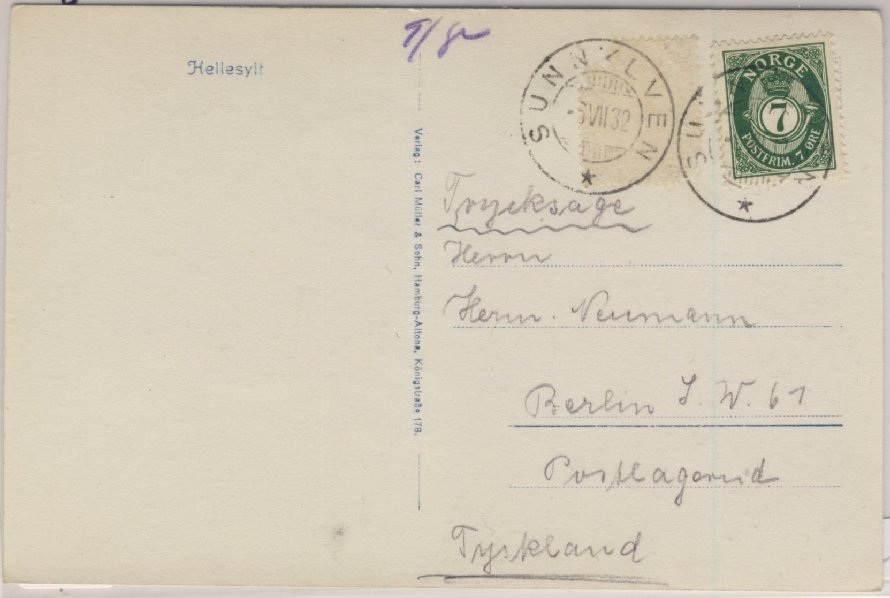 Hellesylt
SUNNYLVEN
VII 32
NORGE
7
POSTFRIM. 7 ØRE
Verlag: Carl Müller & Sohn, Hamburg-Altona, Königstraße 178.
Trycksage
Herrn
Herm. Neumann
Berlin S. W. 61
Postlagernd
Tyskland